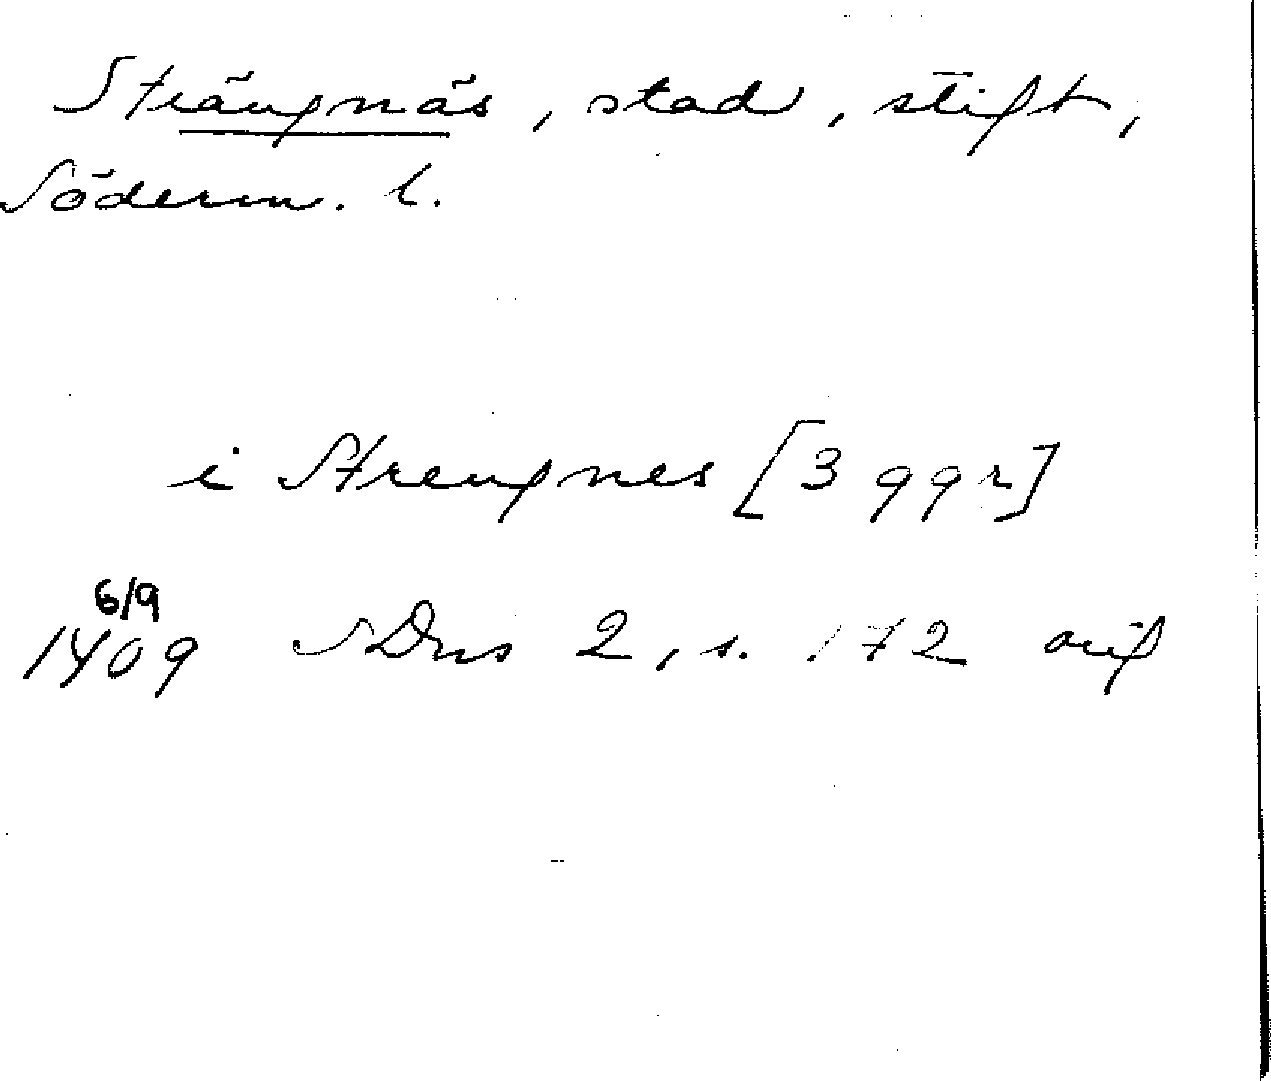 Strängnäs, stad, stift,
Söderm. l.
i Strengnes [3 ggr]
6/9
1409 SDns 2, s. 172 orig